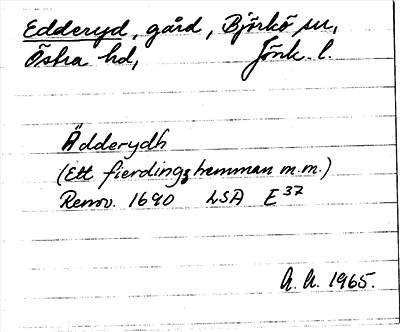 Edderyd, gård, Björkö sn,
Östra hd, Jönk. l.
Ädderydh
(Ett fierdingz hemman m.m.)
Renov. 1690 LSA E 37
A. A. 1965.